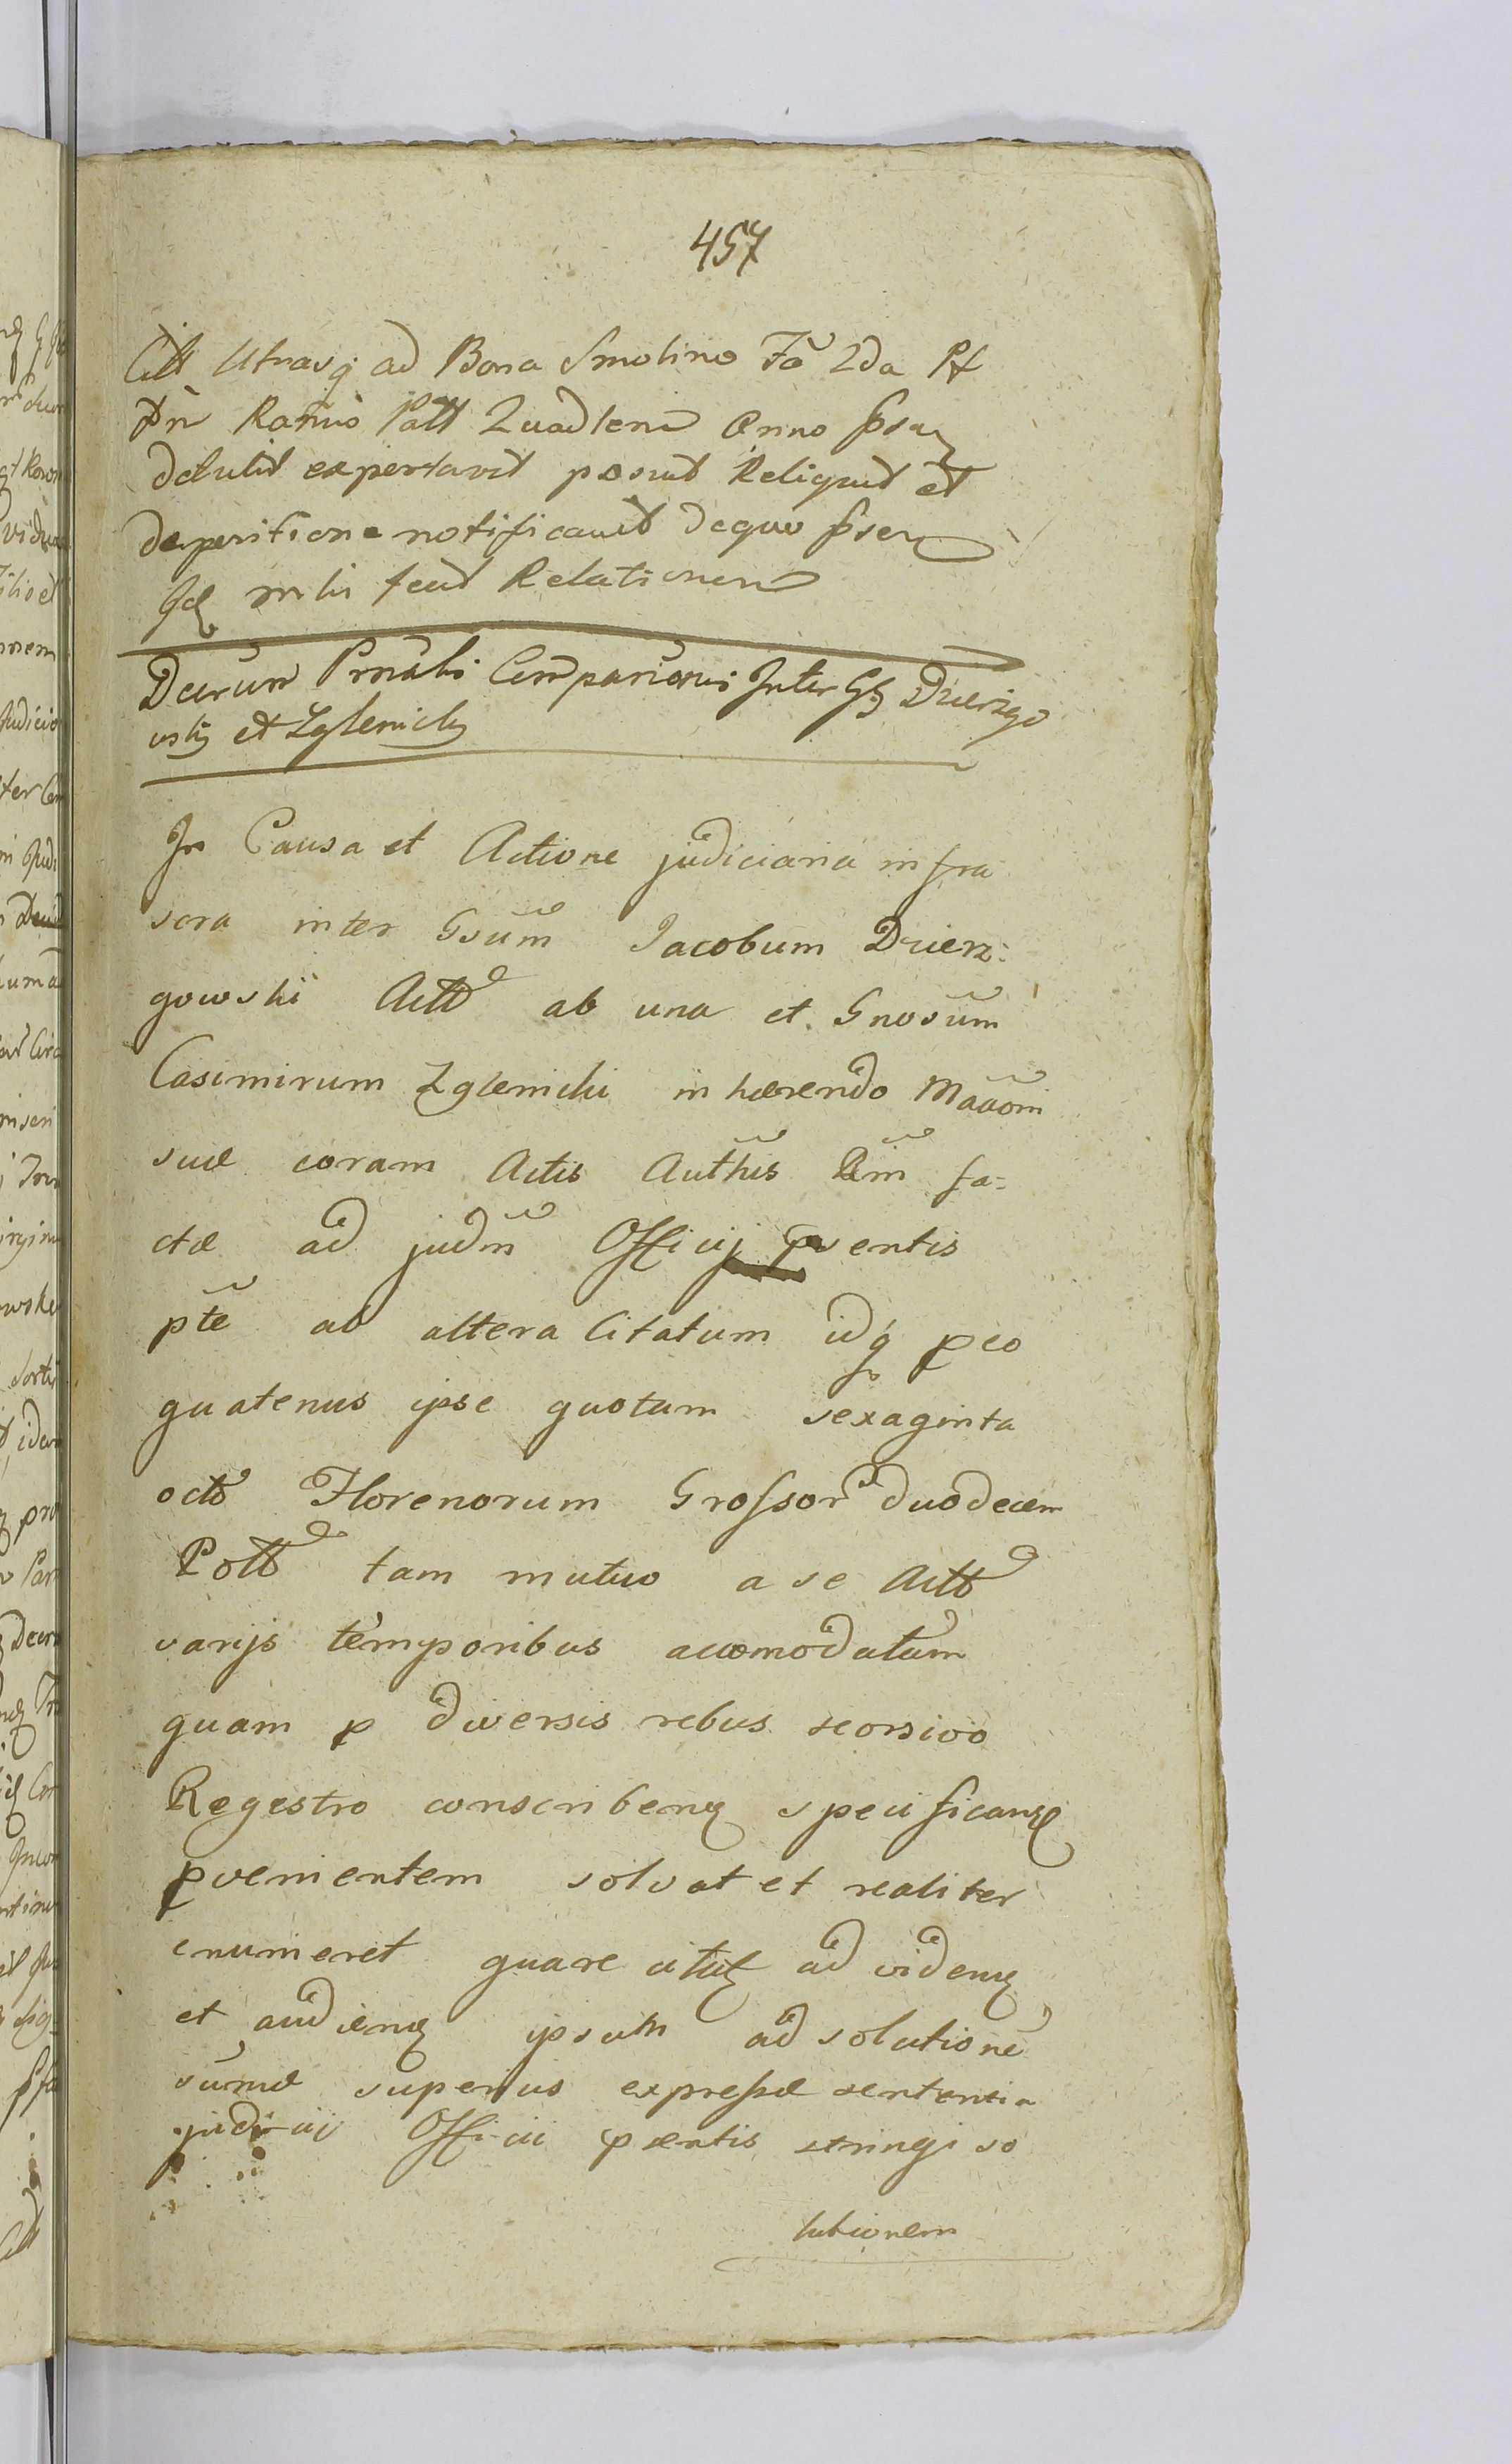 457
Citt Utrasq ad Bona Smolino Fã 2da Pt
Dñ Ramio Patt Zuadlen Anno pser
detulit exportavit posuit Reliquit et
de positione notificavit dequo pser
Idq mihi fecit Relationem
Decrum Pmalis Comparionis Inter GG Dzierzgo
wski et Zglenicki
In Causa et Actione judiciaria infra
scra inter Gsum Jacobum Dzierz:
gowski Actt ab una et Gnosum
Casimirum Zglenicki in hærendo Maõni
suæ coram Actis Authis Cim fa:
ctæ ad judm Officij pventis
pte ab altera Citatum idq peo
quatenus ipse quotam sexaginta
octo Florenorum Grossor duodecem
Pott tam mutuo a se Actt
varijs temporibus accomodatam
quam p diversis rebus seorsivo
Regestro conscribenq specificanq
pvenientem solvat et realiter
enumeret quare citatq ad videnq
et audienq ipsum ad solutione
sumæ superius expressæ sententia
judicij Officii pæntis stringi so
lutionem